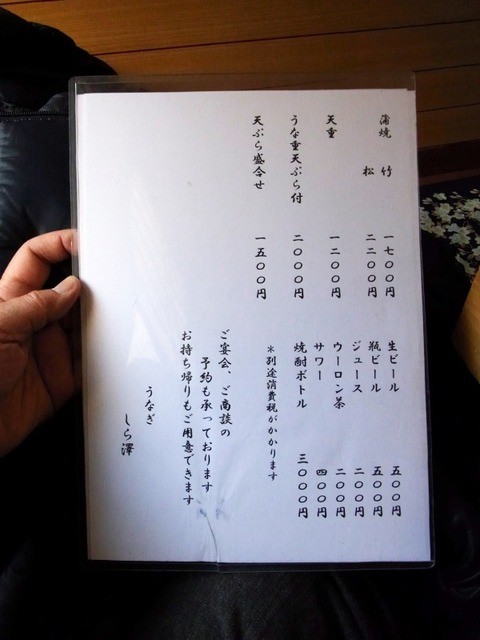 蒲焼 竹 一七〇〇円
松 二二〇〇円
天重 一二〇〇円
うな重天ぷら付 二〇〇〇円
天ぷら盛合せ 一五〇〇円
生ビール 五〇〇円
瓶ビール 五〇〇円
ジュース 二〇〇円
ウーロン茶 二〇〇円
サワー 四〇〇円
焼酎ボトル 三〇〇〇円
＊別途消費税がかかります
ご宴会、ご商談の
予約も承っております
お持ち帰りもご用意できます
うなぎ
しら澤